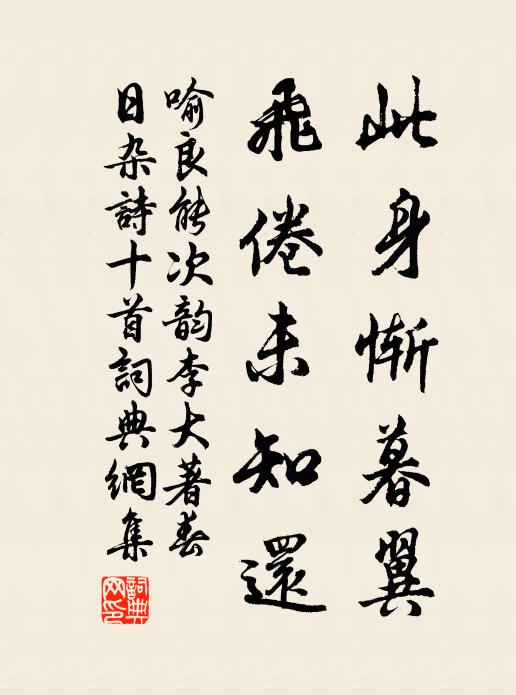 此身慚暮翼
飛倦未知還
喻良能次韵李大著春
日杂詩十首詞典網集
詞典網印